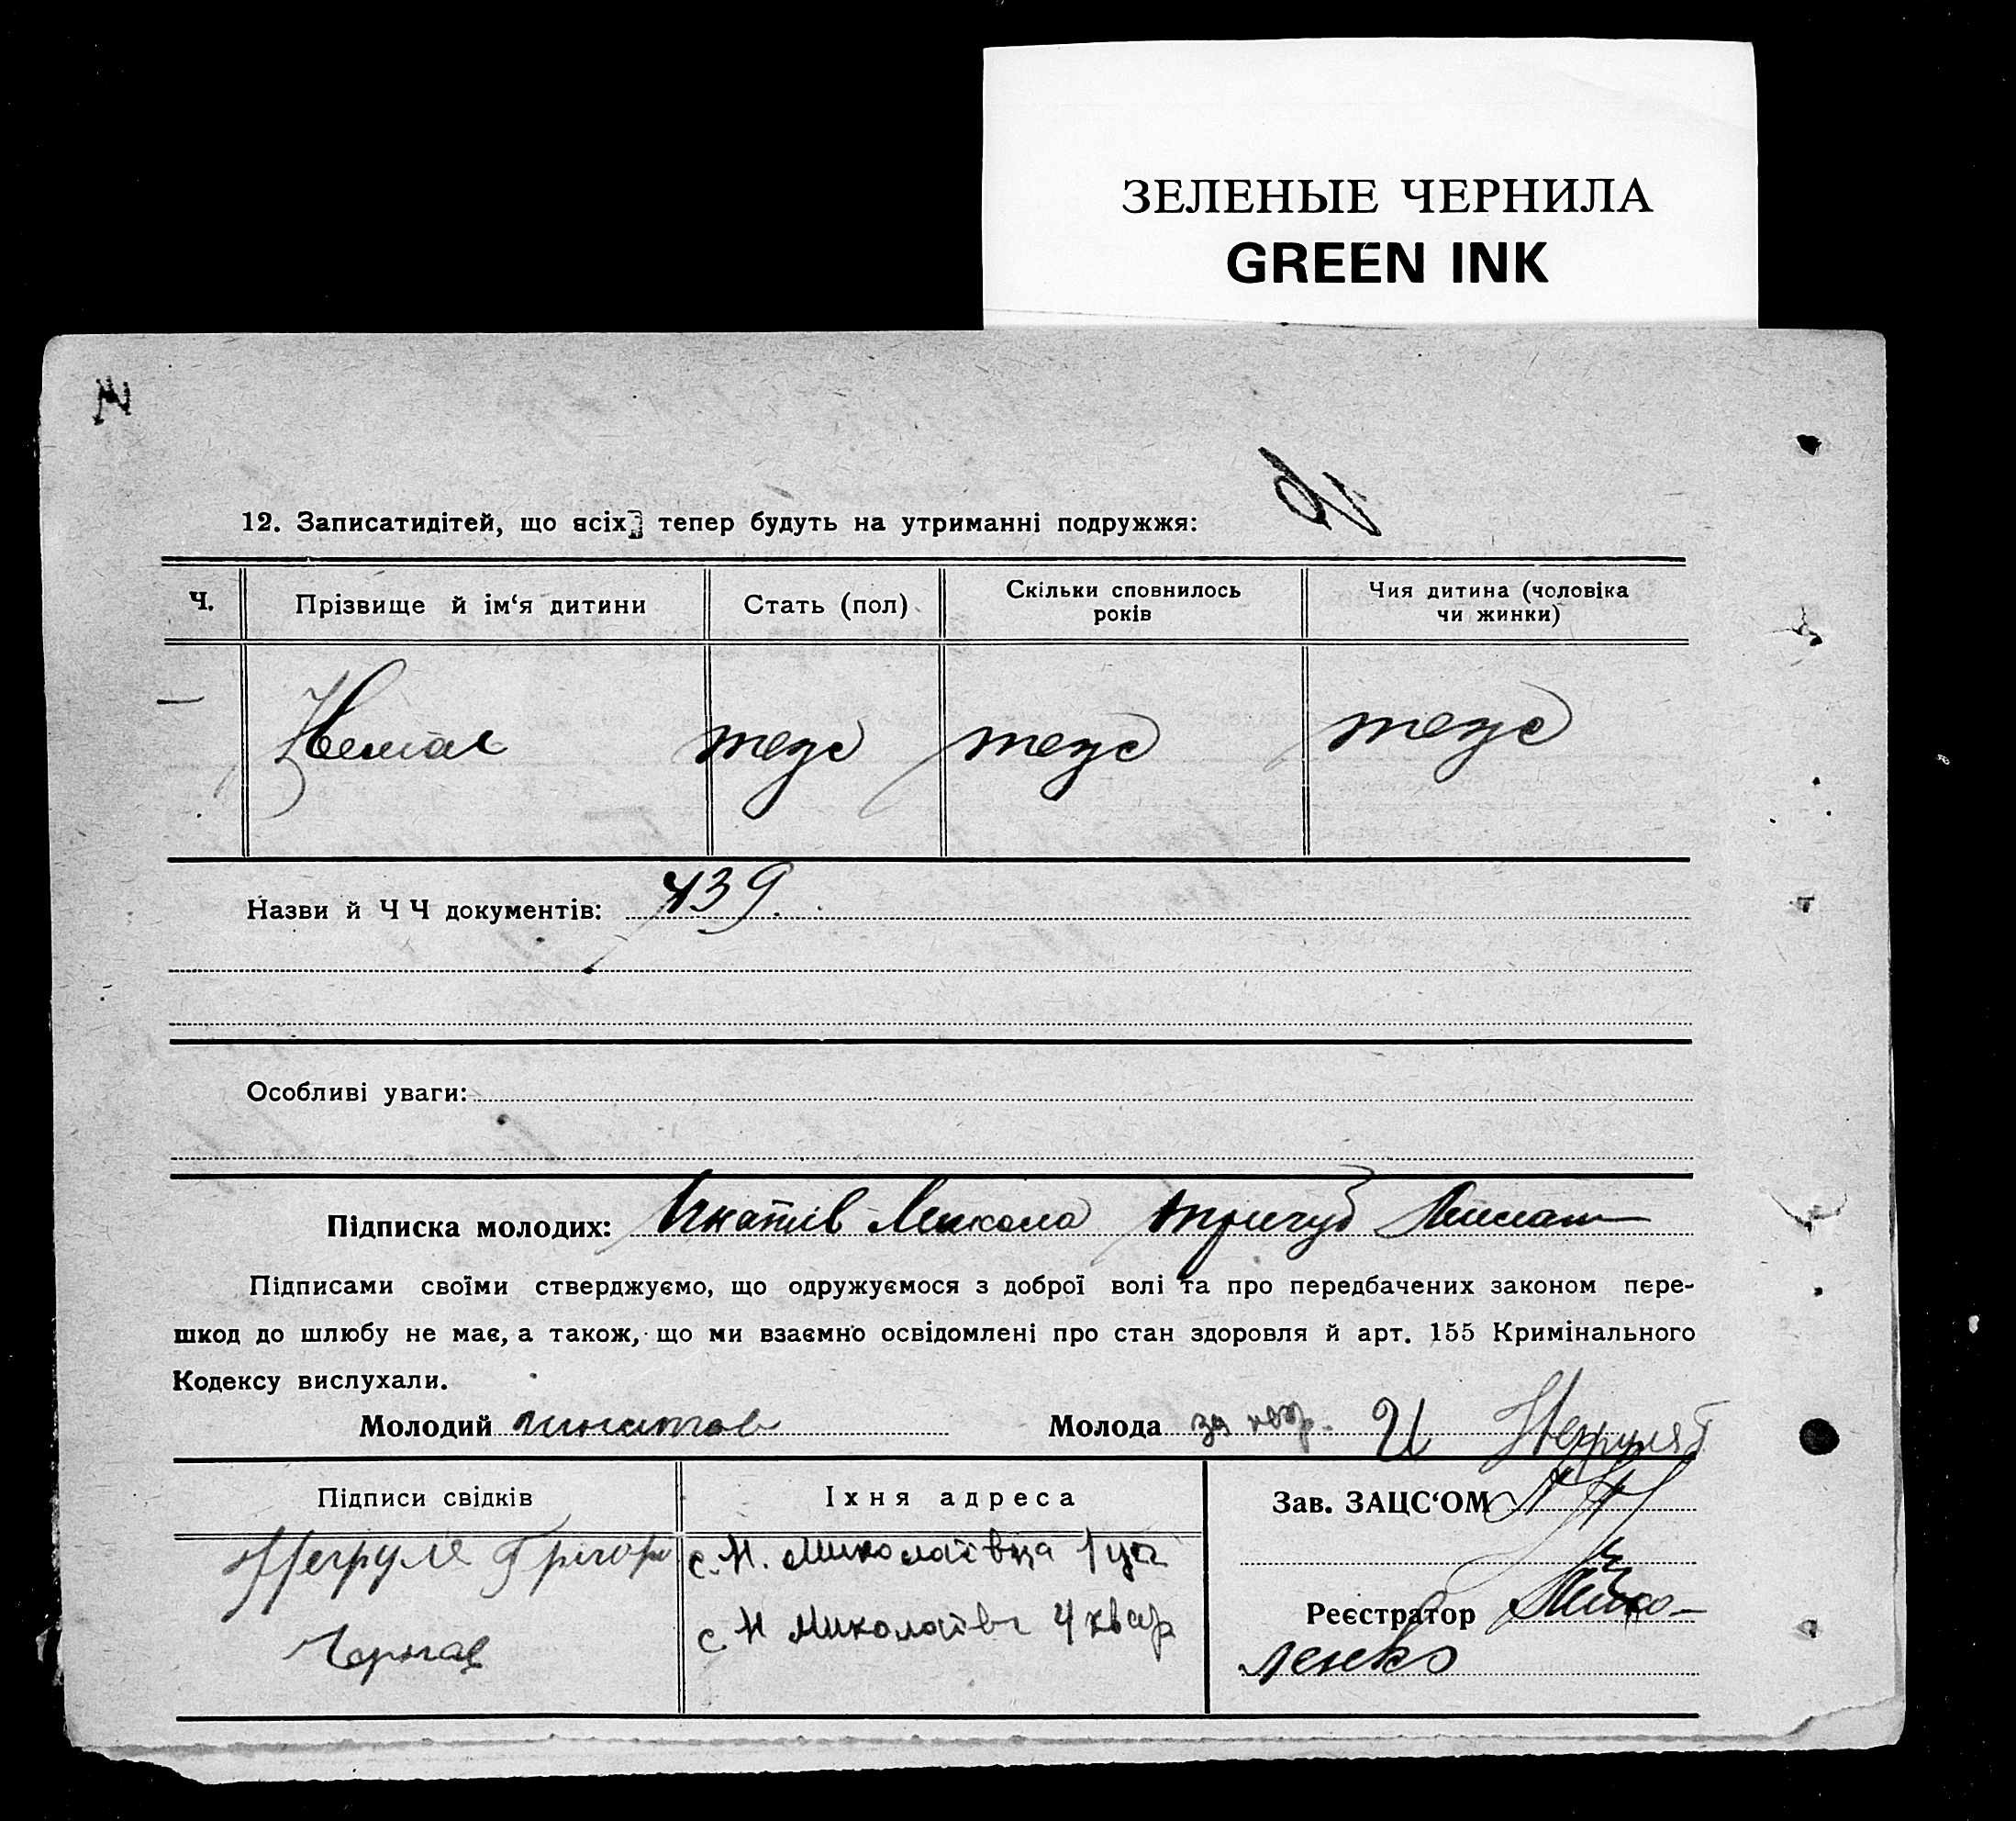 ЗЕЛЕНЫЕ ЧЕРНИЛА
GREEN INK
12. Записатидітей, що всіх тепер будуть на утриманні подружжя:
Ч. Прізвище й ім‘я дитини Стать (пол) Скільки сповнилось років Чия дитина (чоловіка чи жинки)
— Немає теж теж теж
Назви й Ч Ч документів: 439.
Особливі уваги:
Підписка молодих: Микола
Підписами своїми стверджуємо, що одружуємося з доброї волі та про передбачених законом пере-
шкод до шлюбу не має, а також, що ми взаємно освідомлені про стан здоровля й арт. 155 Кримінального
Кодексу вислухали.
Молодий Молода за
Підписи свідків Їхня адреса Зав. ЗАЦС‘ОМ
Негруля Грігор с. Н. Миколаївка
Реєстратор
с Н Миколаївк 4 квар
ленко